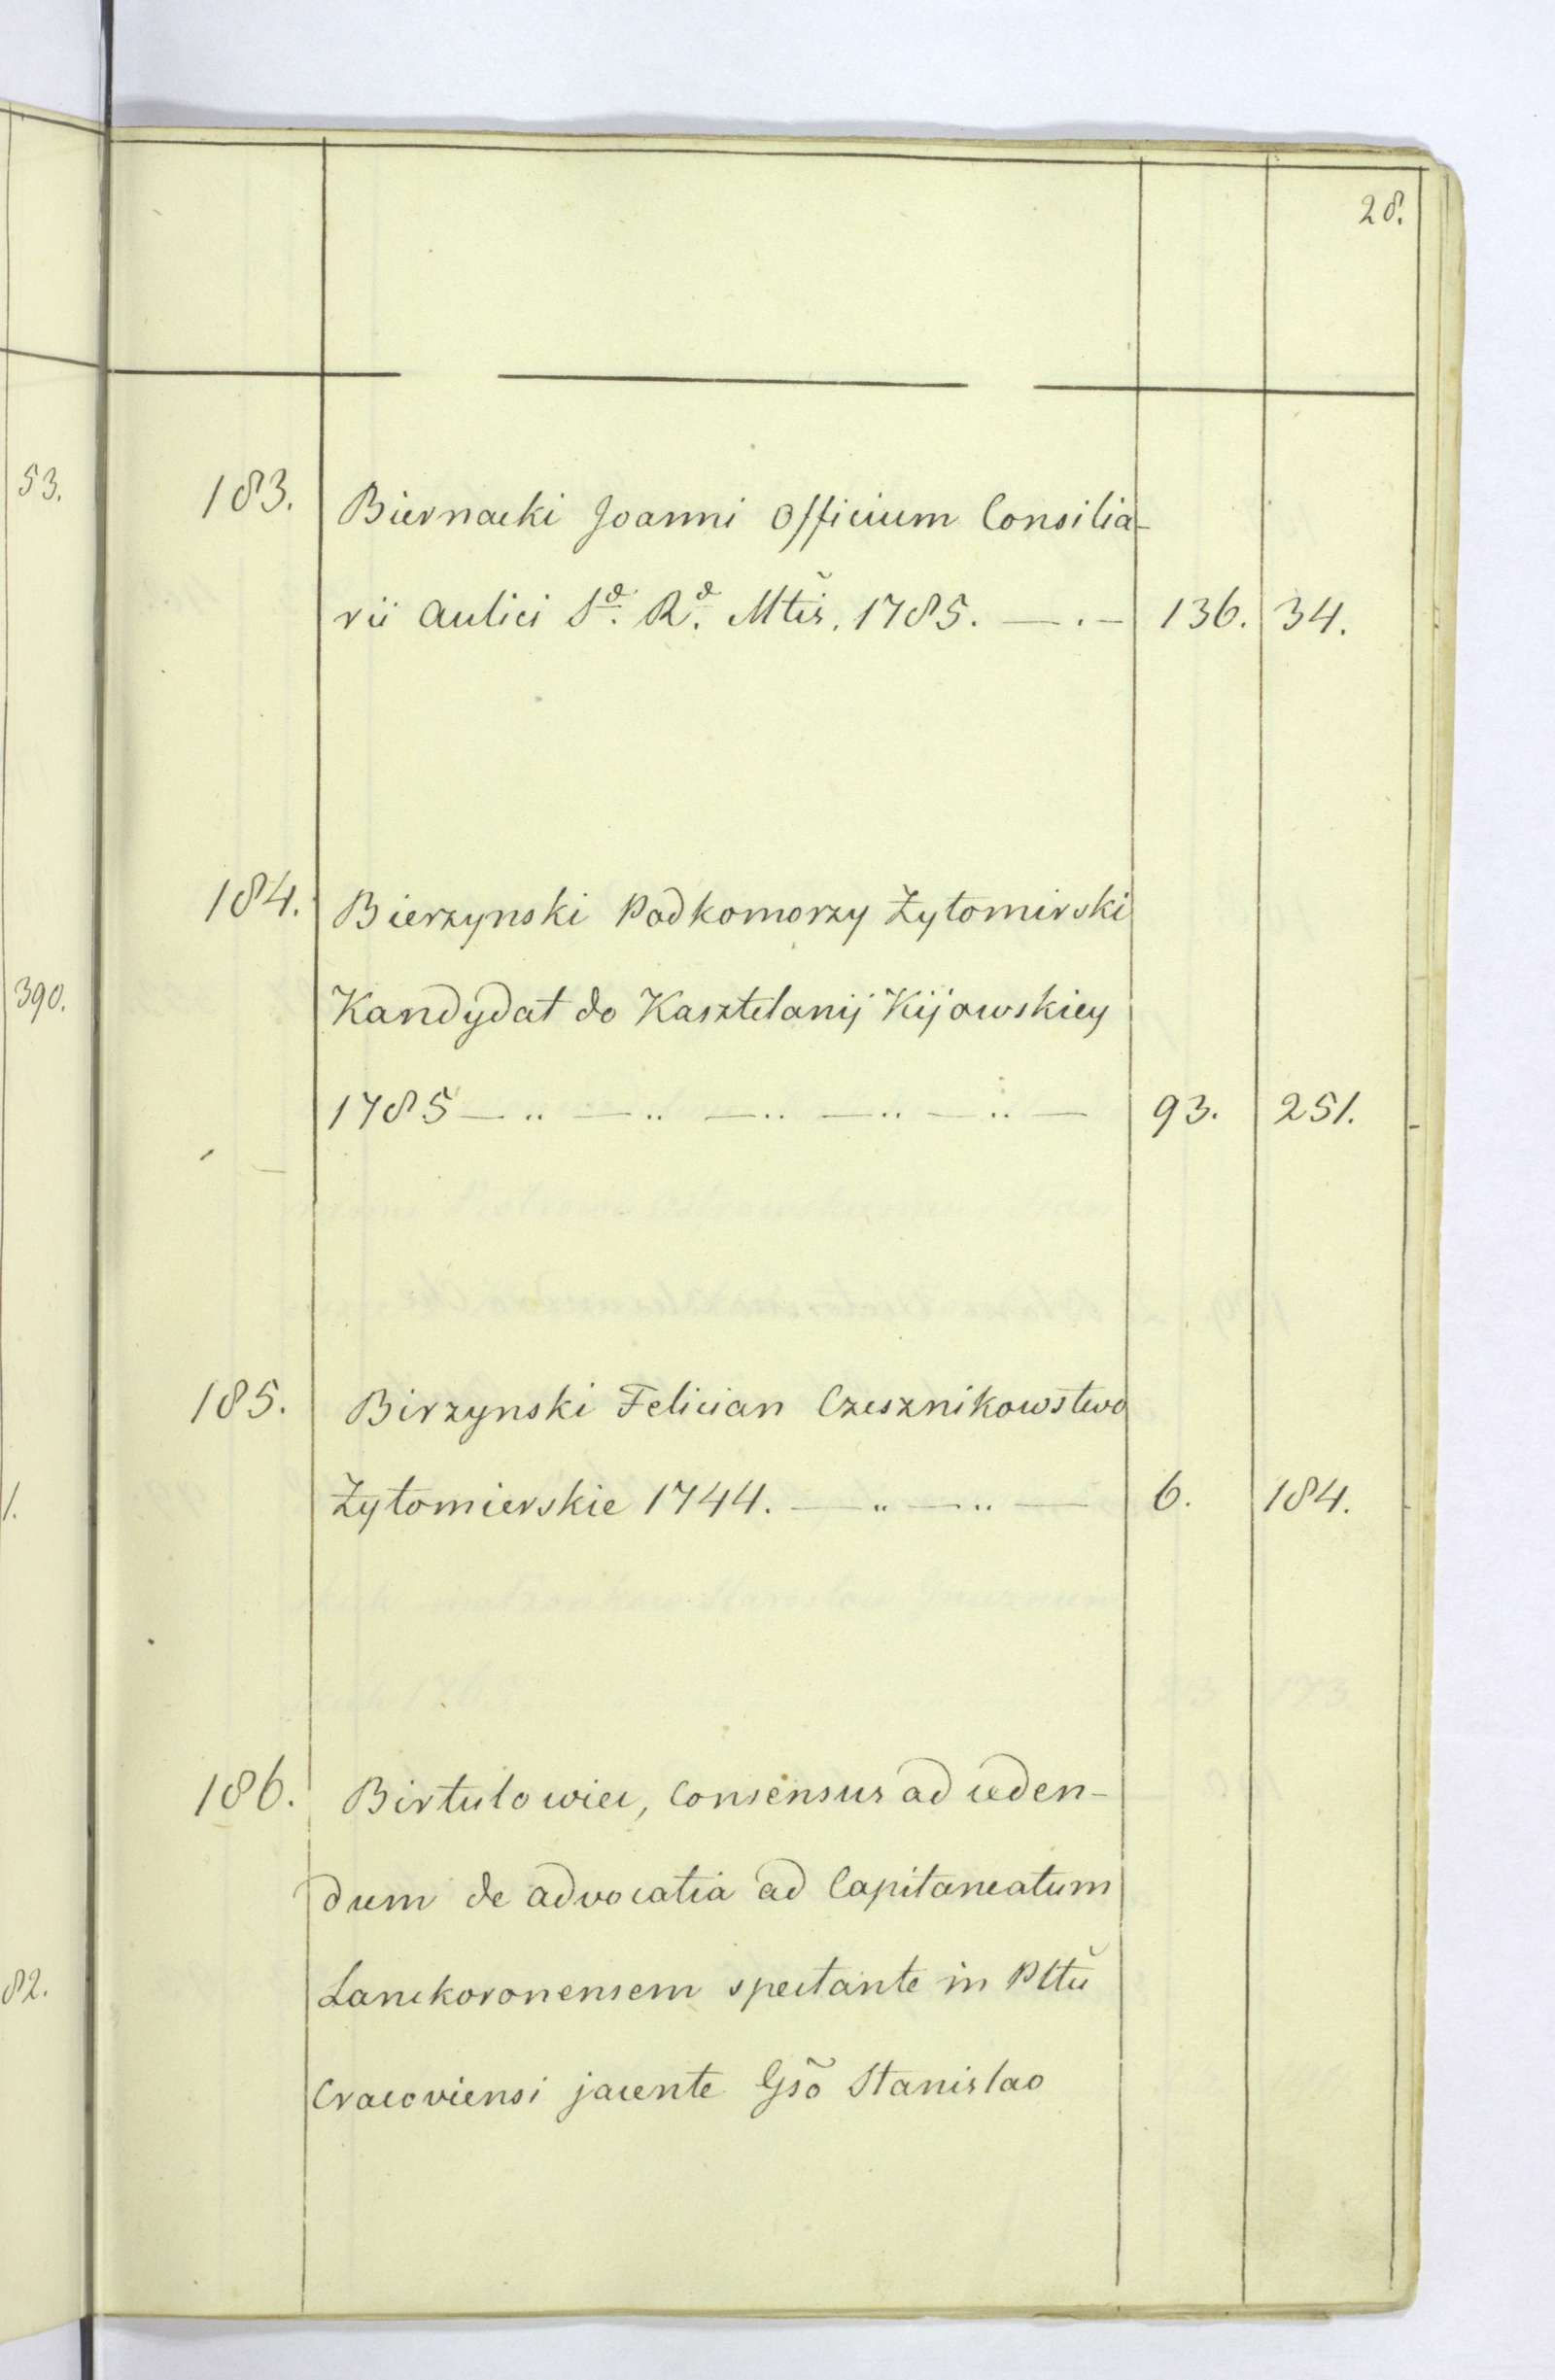 28.
53.
183. Biernacki Joanni Officium Consilia-
rii Aulici Sæ. Ræ. Mtis. 1785. — . — 136. 34.
184. Bierzynski Podkomorzy Żytomirski
390.
Kandydat do Kasztelanij Kijowskiey
1785 — .. — .. — .. — .. — .. — 93. 251.
185. Birzynski Felician Czesznikowstwo
1.
Żytomierskie 1744. — .. — .. — 6. 184.
186. Birtulowicc, Consensus ad ceden-
dum de advocatia ad Capitaneatum
82.
Lanckoronensem spectante in Plttũ
Cracoviensi jacente Gsõ Stanislao